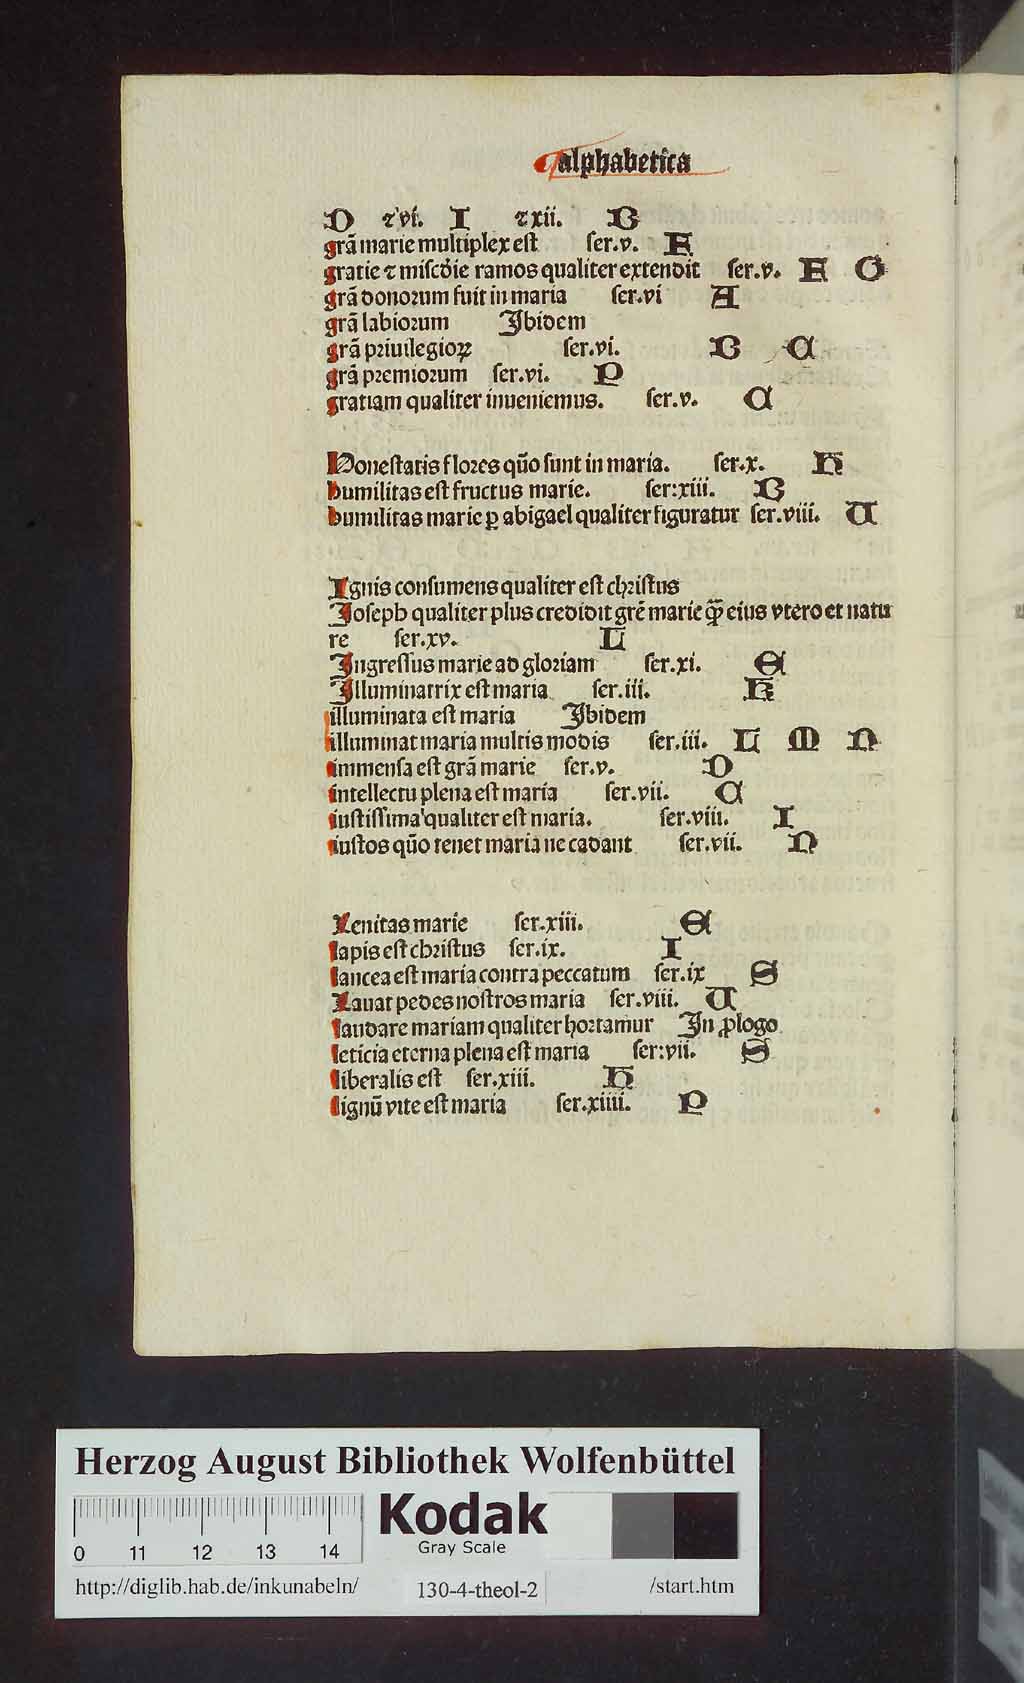 alphabetica
D ⁊ vi. I ⁊ xii. B
grā marie multiplex est ser.v. E
gratie ⁊ miscd̄ie ramos qualiter extendit ser.v. F G
grā donorum fuit in maria ser.vi A
grā labiorum Ibidem
grā priuilegioꝝ ser.vi. B C
grā premiorum ser.vi. P
gratiam qualiter inueniemus. ser.v. C
Honestatis flores quō sunt in maria. ser.x. H
humilitas est fructus marie. ser:xiii. B
humilitas marie ꝑ abigael qualiter figuratur ser.viii. U
Ignis consumens qualiter est christus
Joseph qualiter plus credidit grē marie ꝙ̄ eius vtero et natu
re ser.xv. L
Ingressus marie ad gloriam ser.xi. E
Illuminatrix est maria ser.iii. K
illuminata est maria Ibidem
illuminat maria multis modis ser.iii. L M N
immensa est grā marie ser.v. D
intellectu plena est maria ser.vii. C
iustissima qualiter est maria. ser.viii. I
iustos quō tenet maria ne cadant ser.vii. N
Lenitas marie ser.xiii. E
lapis est christus ser.ix. I
lancea est maria contra peccatum ser.ix S
Lauat pedes nostros maria ser.viii. U
laudare mariam qualiter hortamur In ꝓlogo
leticia eterna plena est maria ser:vii. S
liberalis est ser.xiii. H
lignū vite est maria ser.xiiii. P
Herzog August Bibliothek Wolfenbüttel
Kodak
Gray Scale
0 11 12 13 14
http://diglib.hab.de/inkunabeln/ 130-4-theol-2 /start.htm